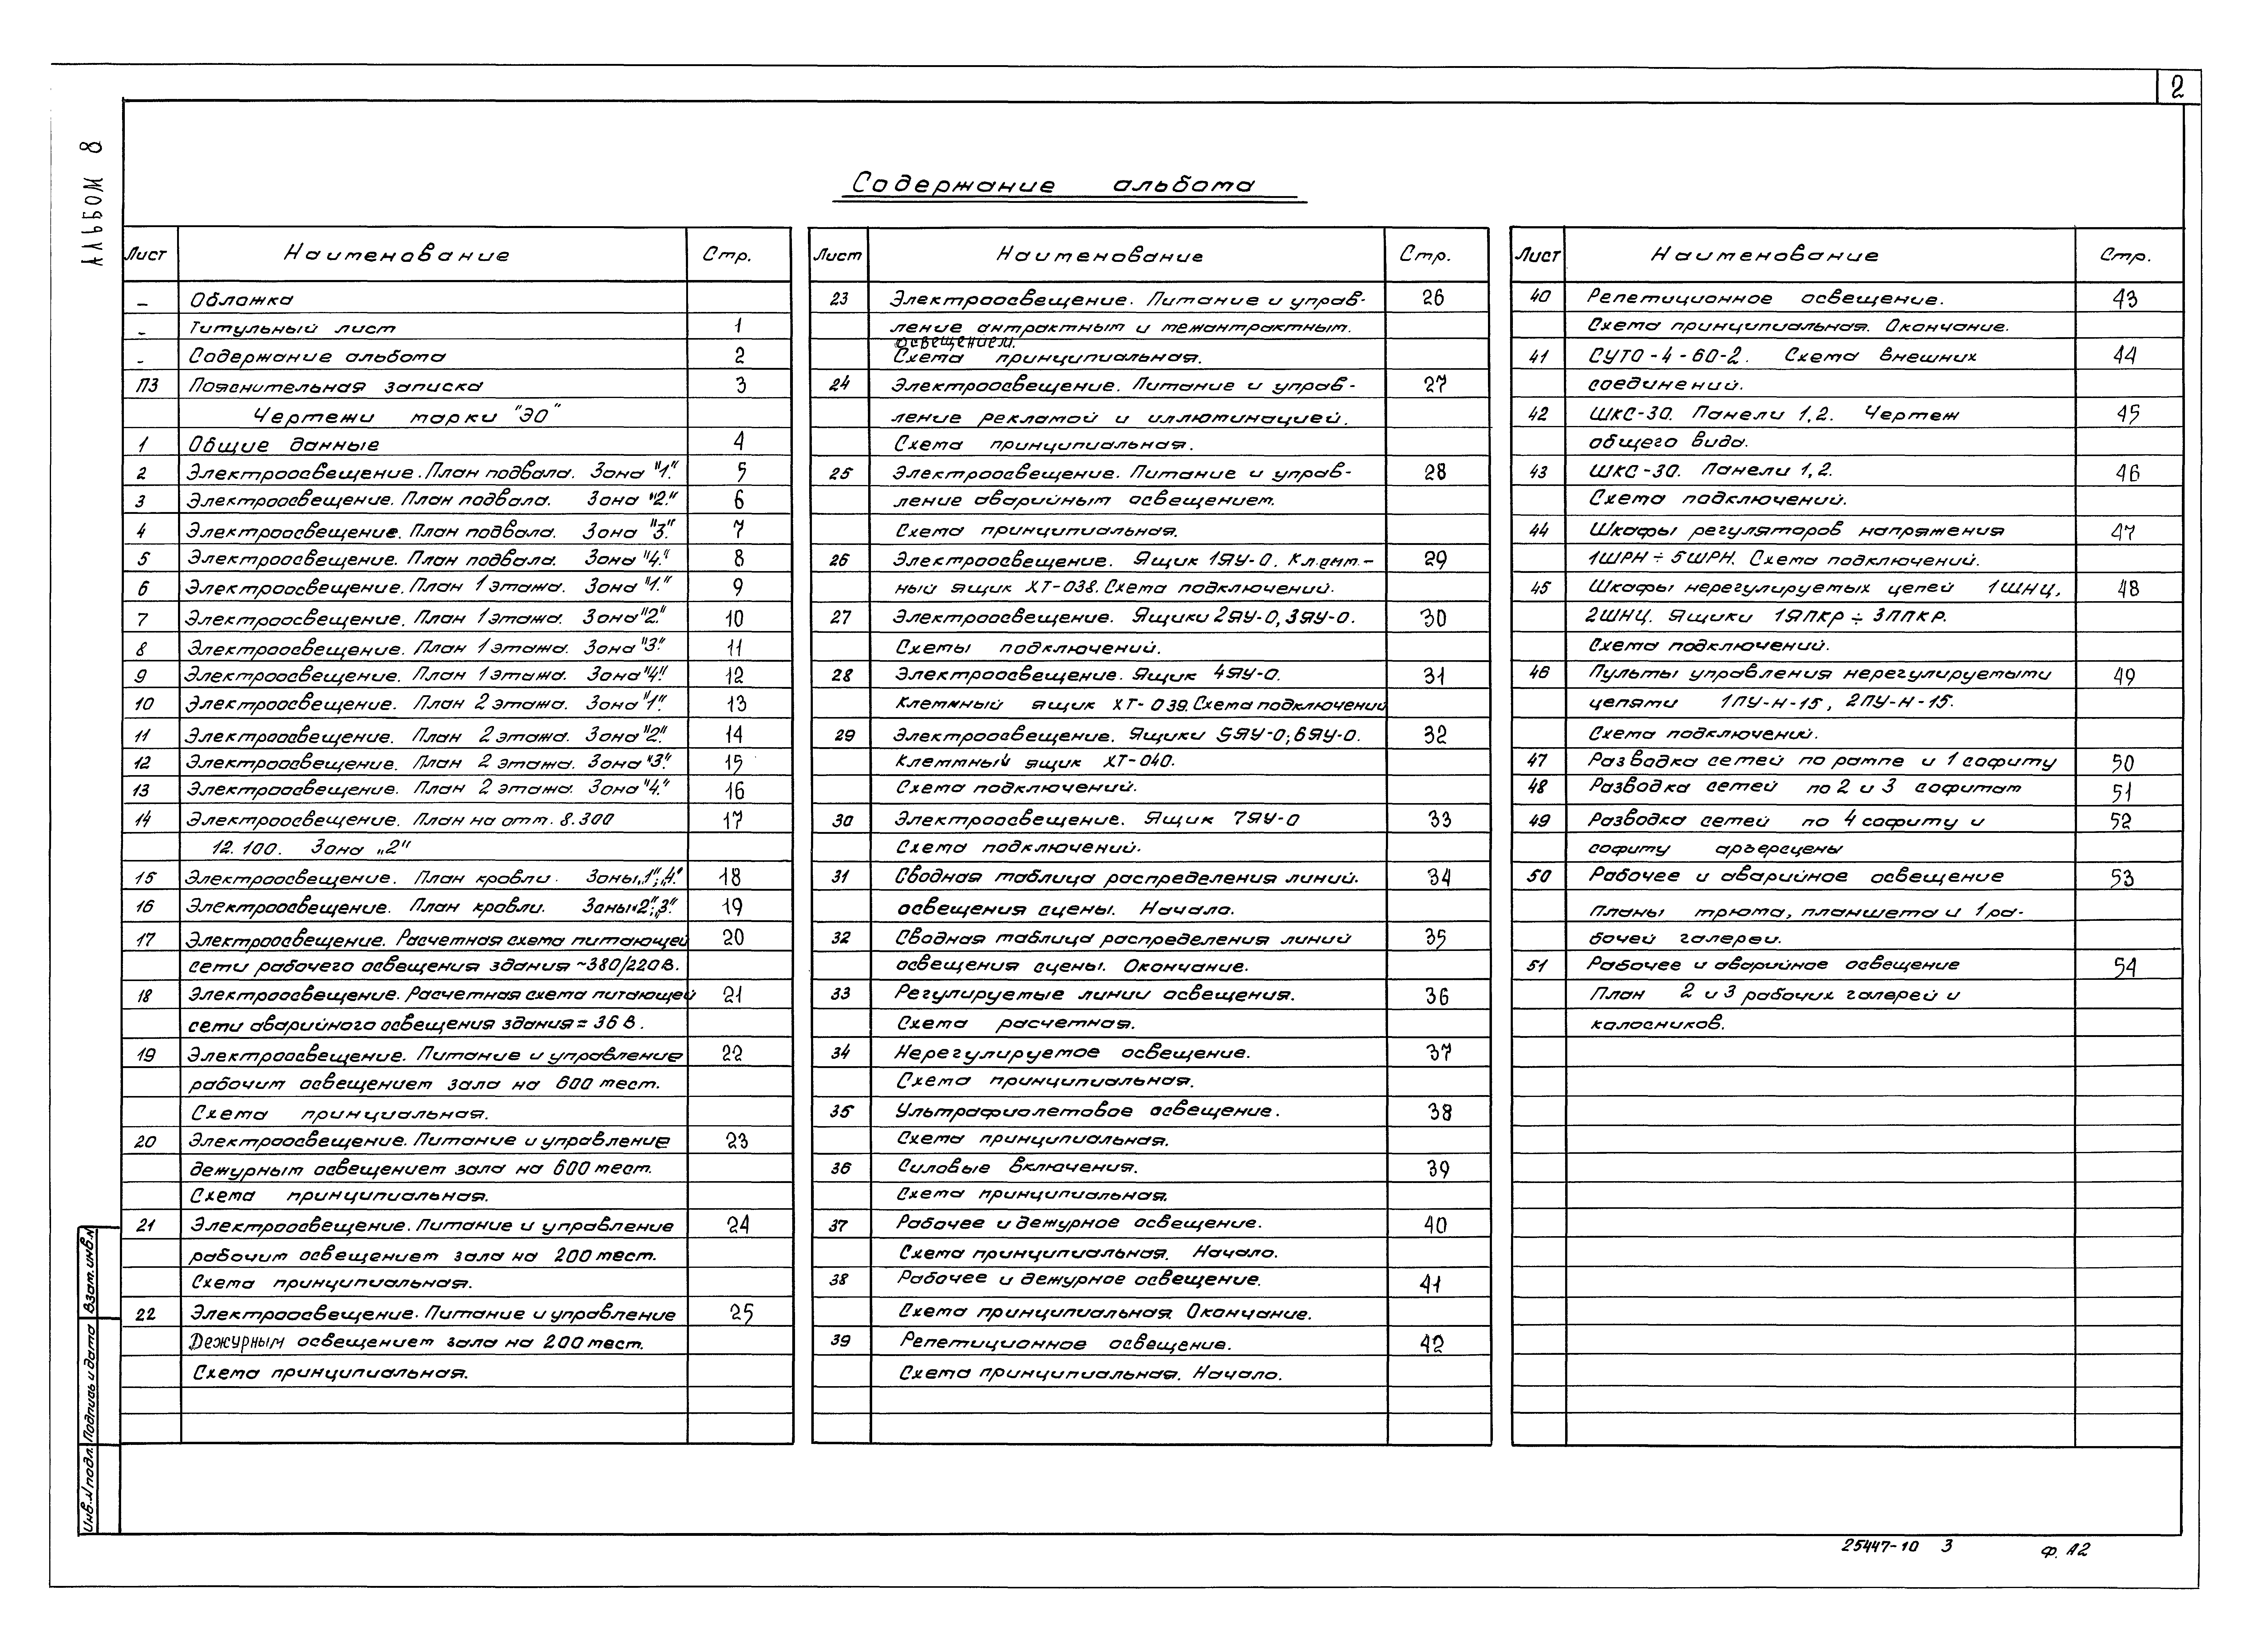 2
Альбом 8
Содержание альбома
Лист Наименование Стр.
— Обложка
- Титульный лист 1
- Содержание альбома 2
ПЗ Пояснительная записка 3
Чертежи марки "ЭО"
1 Общие данные 4
2 Электроосвещение. План подвала. Зона "1". 5
3 Электроосвещение. План подвала. Зона "2". 6
4 Электроосвещение. План подвала. Зона "3". 7
5 Электроосвещение. План подвала. Зона "4." 8
6 Электроосвещение. План 1 этажа. Зона "1." 9
7 Электроосвещение. План 1 этажа. Зона "2". 10
8 Электроосвещение. План 1 этажа. Зона "3". 11
9 Электроосвещение. План 1 этажа. Зона "4". 12
10 Электроосвещение. План 2 этажа. Зона "1". 13
11 Электроосвещение. План 2 этажа. Зона "2". 14
12 Электроосвещение. План 2 этажа. Зона "3". 15
13 Электроосвещение. План 2 этажа. Зона "4." 16
14 Электроосвещение. План на отм. 8.300 17
12.100. Зона „2"
15 Электроосвещение. План кровли. Зоны „1"; „4". 18
16 Электроосвещение. План кровли. Зоны „2"; „3". 19
17 Электроосвещение. Расчетная схема питающей 20
сети рабочего освещения здания ~380/220 В.
18 Электроосвещение. Расчетная схема питающей 21
сети аварийного освещения здания = 36 В.
19 Электроосвещение. Питание и управление 22
рабочим освещением зала на 600 мест.
Схема принципиальная.
20 Электроосвещение. Питание и управление 23
дежурным освещением зала на 600 мест.
Схема принципиальная.
21 Электроосвещение. Питание и управление 24
рабочим освещением зала на 200 мест.
Схема принципиальная.
22 Электроосвещение. Питание и управление 25
Дежурным освещением зала на 200 мест.
Схема принципиальная.
Лист Наименование Стр.
23 Электроосвещение. Питание и управ- 26
ление антрактным и межантрактным.
освещением.
Схема принципиальная.
24 Электроосвещение. Питание и управ- 27
ление рекламой и иллюминацией.
Схема принципиальная.
25 Электроосвещение. Питание и управ- 28
ление аварийным освещением.
Схема принципиальная.
26 Электроосвещение. Ящик 1ЯУ-О. Клемм.- 29
ный ящик ХТ-038. Схема подключений.
27 Электроосвещение. Ящики 2ЯУ-О, 3ЯУ-О. 30
Схемы подключений.
28 Электроосвещение. Ящик 4ЯУ-О. 31
Клеммный ящик ХТ-039. Схема подключений
29 Электроосвещение. Ящики 5ЯУ-О; 6ЯУ-О. 32
Клеммный ящик ХТ-040.
Схема подключений.
30 Электроосвещение. Ящик 7ЯУ-О 33
Схема подключений.
31 Сводная таблица распределения линий. 34
освещения сцены. Начало.
32 Сводная таблица распределения линий 35
освещения сцены. Окончание.
33 Регулируемые линии освещения. 36
Схема расчетная.
34 Нерегулируемое освещение. 37
Схема принципиальная.
35 Ультрафиолетовое освещение. 38
Схема принципиальная.
36 Силовые включения. 39
Схема принципиальная.
37 Рабочее и дежурное освещение. 40
Схема принципиальная. Начало.
38 Рабочее и дежурное освещение. 41
Схема принципиальная. Окончание.
39 Репетиционное освещение. 42
Схема принципиальная. Начало.
Лист Наименование Стр.
40 Репетиционное освещение. 43
Схема принципиальная. Окончание.
41 СУТО-4-60-2. Схема внешних 44
соединений.
42 ШКС-30. Панели 1,2. Чертеж 45
общего вида.
43 ШКС-30. Панели 1,2. 46
Схема подключений.
44 Шкафы регуляторов напряжения 47
1ШРН ÷ 5ШРН. Схема подключений.
45 Шкафы нерегулируемых цепей 1ШНЦ, 48
2ШНЦ. Ящики 1ЯПКР ÷ 3ППКР.
Схема подключений.
46 Пульты управления нерегулируемыми 49
цепями 1ПУ-Н-15, 2ПУ-Н-15.
Схема подключений.
47 Разводка сетей по рампе и 1 софиту 50
48 Разводка сетей по 2 и 3 софитам 51
49 Разводка сетей по 4 софиту и 52
софиту арьерсцены
50 Рабочее и аварийное освещение 53
Планы трюма, планшета и 1 ра-
бочей галереи.
51 Рабочее и аварийное освещение 54
План 2 и 3 рабочих галерей и
колосников.
Инв. N подл. Подпись и дата Взам. инв. N
25447-10 3 Ф. А2